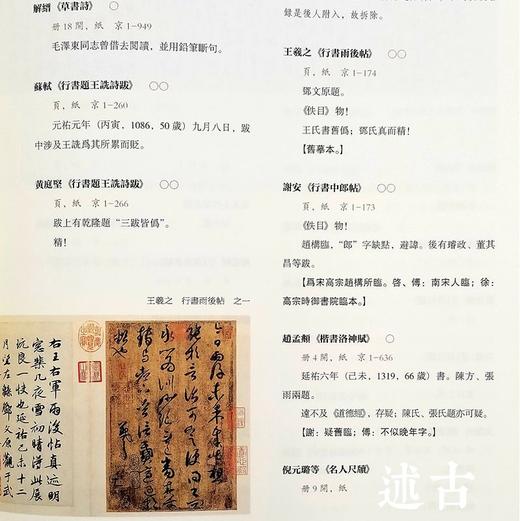 解縉《草書詩》 ○
册18開，紙 京1-949
毛澤東同志曾借去閱讀，並用鉛筆斷句。
蘇軾《行書題王詵詩跋》 ○○
頁，紙 京1-260
元祐元年（丙寅，1086，50歲）九月八日，跋
中涉及王詵爲其所累而貶。
黃庭堅《行書題王詵詩跋》 ○○
頁，紙 京1-266
跋上有乾隆題“三跋皆僞”。
精！
王羲之 行書雨後帖 之一
右王右軍雨後帖真迹明
窓棐几夜雪初晴得此展
玩良一快也延祐己未十二
月望左綿鄧文原觀于武
錄是後人附入，故拆除。
王羲之《行書雨後帖》 ○○
頁，紙 京1-174
鄧文原題。
《佚目》物！
王氏書舊僞；鄧氏真而精！
【舊摹本。】
謝安《行書中郎帖》 ○○
頁，紙 京1-173
《佚目》物！
趙構臨，“郎”字缺點，避諱。後有璿政、董其
昌等跋。
【爲宋高宗趙構所臨。啓、傅：南宋人臨；徐：
高宗時御書院臨本。】
趙孟頫《楷書洛神賦》 ○
册4開，紙 京1-636
延祐六年（己未，1319，66歲）書。陳方、張
雨兩題。
遠不及《道德經》，存疑；陳氏、張氏題亦可疑。
【謝：疑舊臨；傅：不似晚年字。】
倪元璐等《名人尺牘》
册9開，紙
述古